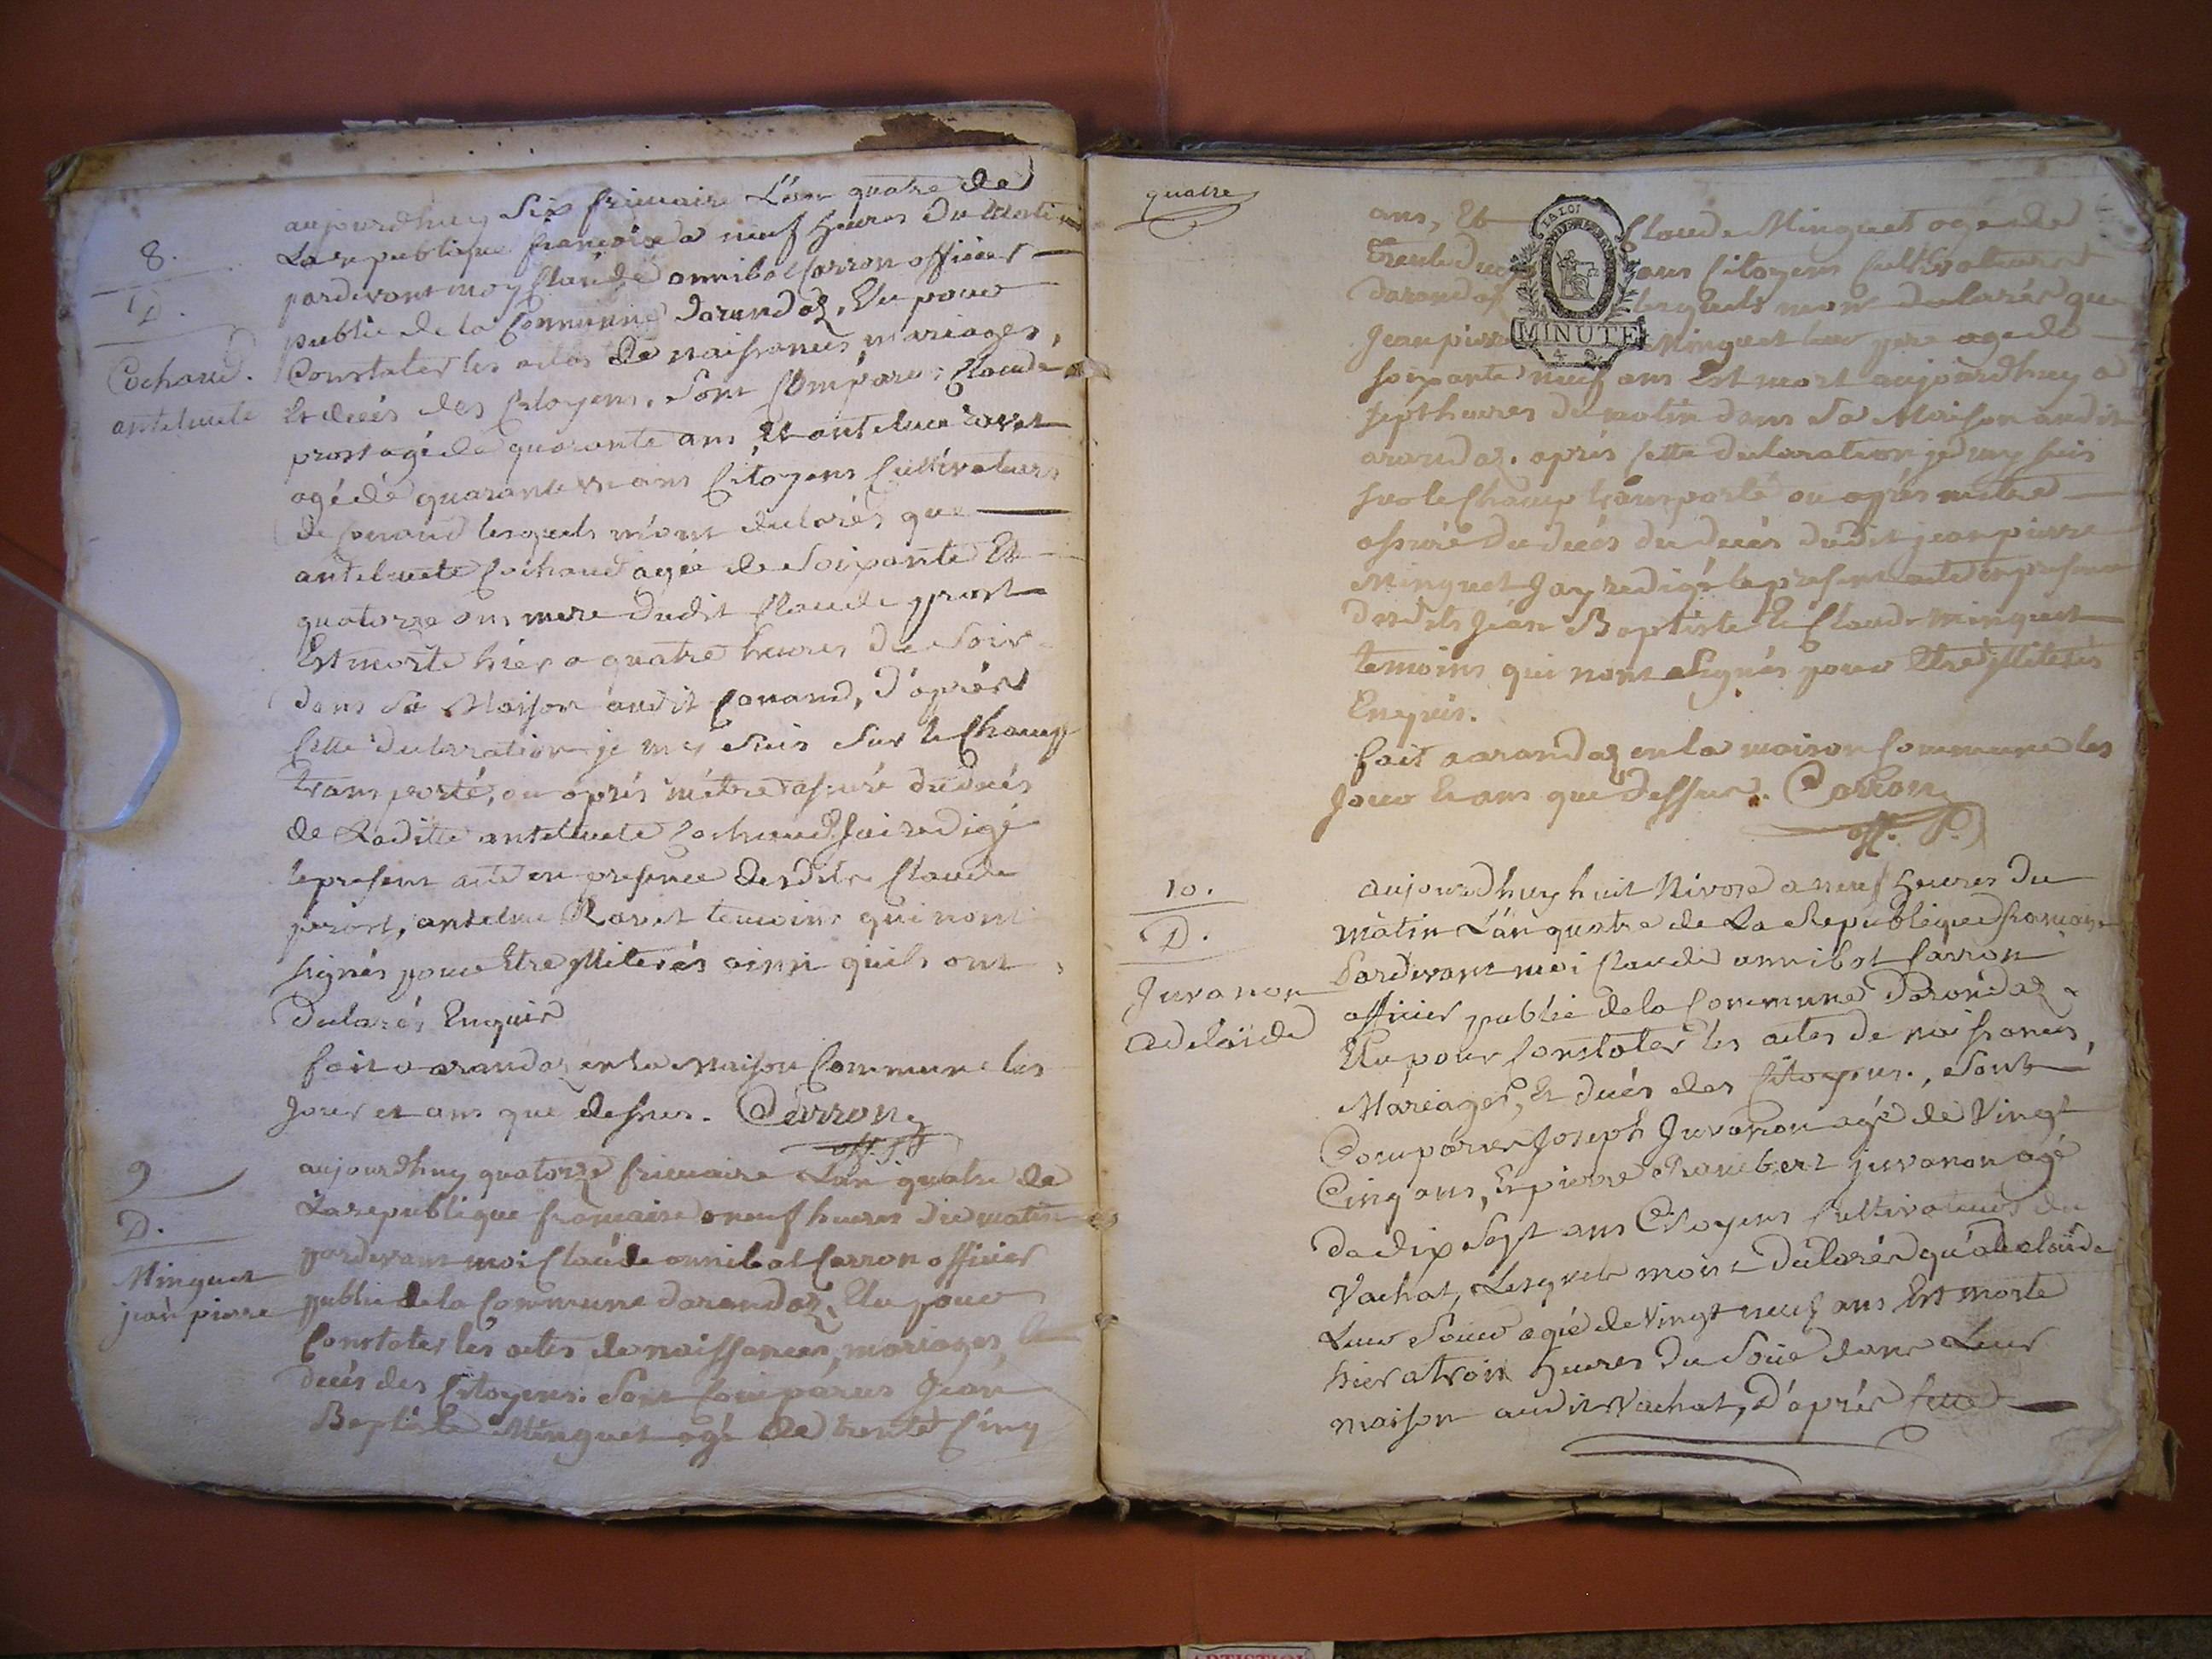 8.
D.
Cochaud.
antelmete
aujourdhuy Six frimaire L'an quatre de
La republique francoise a neuf heures Du Matin
pardevant moy Claude annibal Carron officier
public de la Commune darandaz, Elu pour
Constater les actes de naissances, mariages,
Et decés des Citoyens. Sont Comparu: Claude
prost agé de quarante ans, Et antelme ravet
agé de quarante ans Citoyens Cultivateurs
de Conand lesquels m'ont declarés que
antelmete Cochaud agée de Soixante Et
quatorze ans mere dudit Claude prost
Est morte hier a quatre heures du Soir
dans Sa Maison audit Conand, D'aprés
Cette declaration je my Suis Sur le Champ
transporté, ou aprés m'être assuré du decés
de Laditte antelmete Cochaud J'ai redigé
le present acte en presence desdits Claude
prost, antelme Ravet temoins qui n'ont
signés pour Etre Miterés ainsi quils ont
declarés Enquis
fait a arandaz en la Maison Commune les
Jour et ans que dessus. Carron
off. P.
9
D.
Minguet
jean pierre
aujourdhuy quatorze frimaire L'an quatre de
La republique francaise a neuf heures du matin
pardevant moi Claude annibal Carron officier
public de la Commune darandaz, Elu pour
Constater les actes de naissances, mariages, Et
decés des Citoyens. Sont Comparus Jean
Baptiste Minguet agé de trente Cinq
quatre
LA LOI
MINUTE
ans, Et Claude Minguet agé de
trente deux ans Citoyens Cultivateurs
darandaz lesquels mont declarés que
Jean pierre Minguet leur pere agé de
soixante neuf ans Est mort aujourdhuy a
sept heures du matin dans Sa Maison audit
arandaz. aprés Cette declaration je my suis
sur le Champ transporté ou aprés m'être
assuré du decés du decés dudit jean pierre
Minguet Jay redigé le present acte en presence
desdits Jean Baptiste Et Claude Minguet
temoins qui nont Signés pour Etre Miterés
Enquis.
fait a arandaz en la maison Commune les
Jour Et ans que dessus. Carron
off. P.
10.
D.
Juvanon
adelaïde
aujourdhuy huit Nivose a neuf heures du
matin L'an quatre de La Republique francaise
Pardevant moi Claude annibal Carron
officier public de la Commune Darandaz
Elu pour Constater les actes de naissances,
Mariages, Et decés des Citoyens., Sont
Comparus Joseph Juvanon agé de Vingt
Cinq ans, Et pierre Rambert juvanon agé
de dix Sept ans Citoyens Cultivateurs du
Vachat, Lesquels mont declarés qu'adelaïde
Leur Soeur agée de Vingt neuf ans Est morte
hier a trois heures du Soir dans Leur
maison audit Vachat, D'aprés Cette